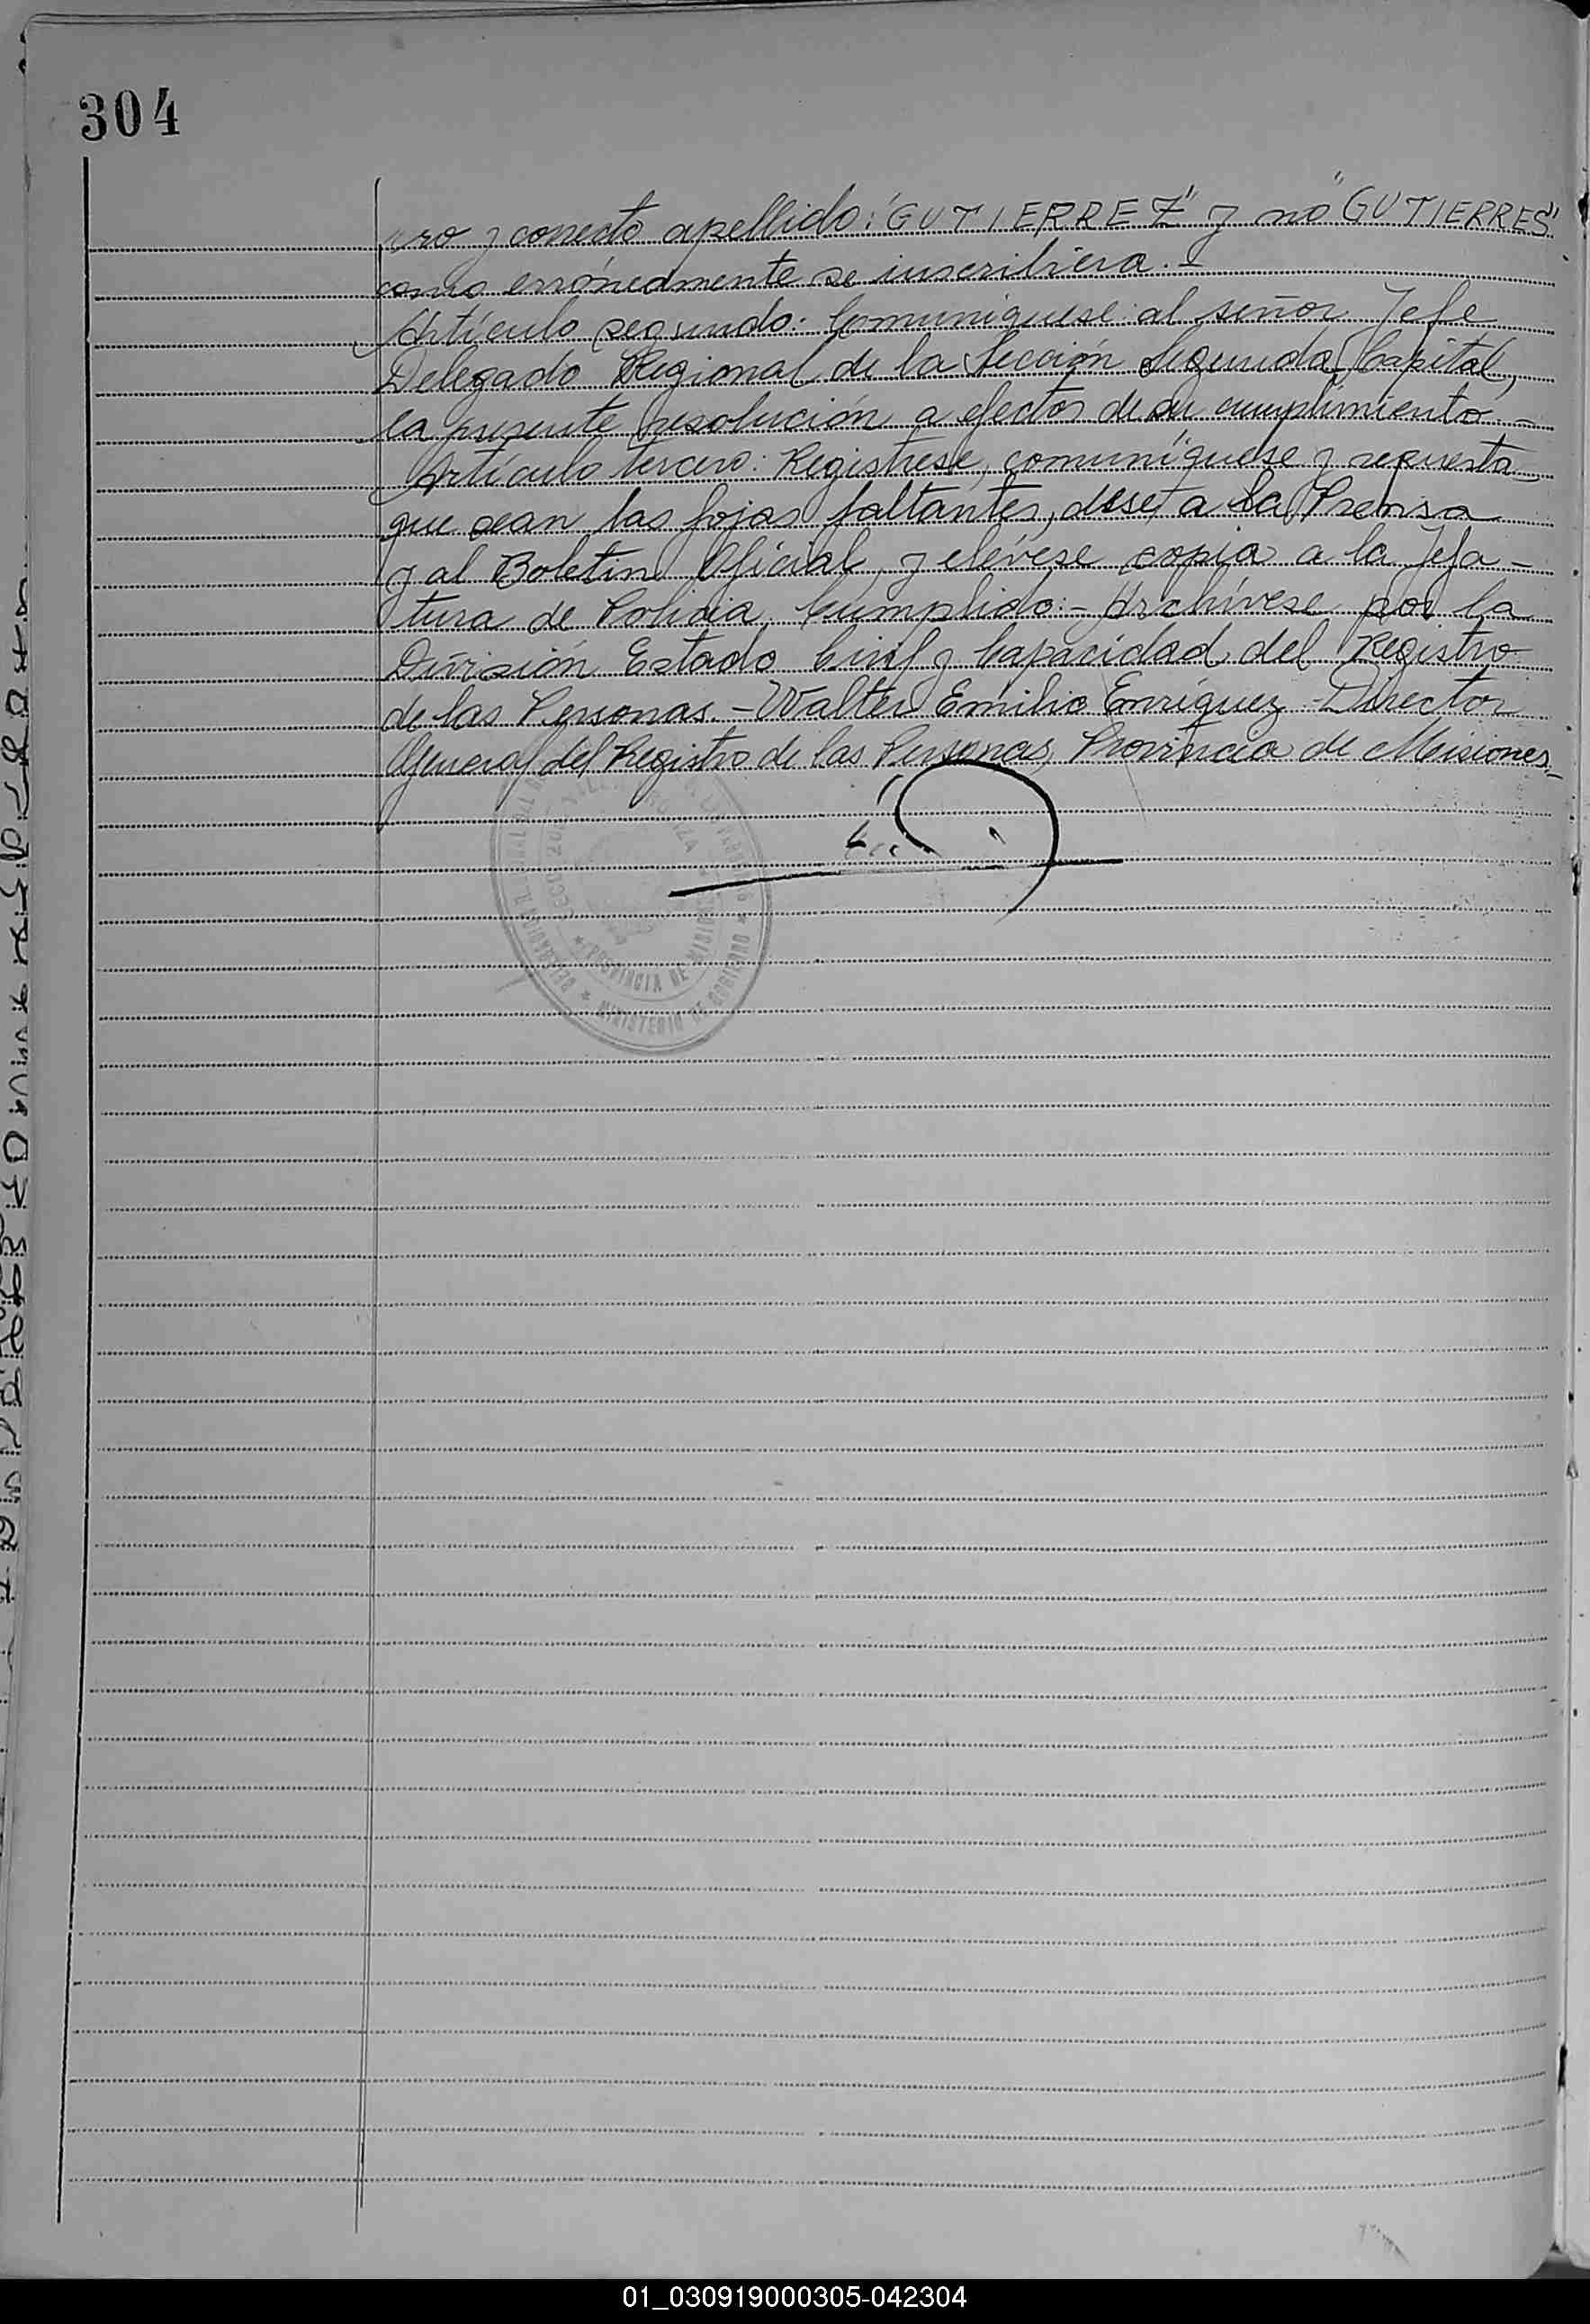 304
ro y correcto apellido: "GUTIERREZ" y no "GUTIERRES"
como erróneamente se inscribiera.-
Artículo segundo: Comuniquese al señor Jefe
Delegado Regional de la Sección Segunda, Capital,
la presente resolución a efectos de su cumplimiento.-
Artículo tercero: Registrese, comuníquese y repuesta
que sean las fojas faltantes, dese a la Prensa
y al Boletin Oficial, y elévese copia a la Jefa-
tura de Policia, Cumplido:- Archívese por la
División Estado Civil y Capacidad del Registro
de las Personas.- Walter Emilio Enriquez - Director
General del Registro de las Personas, Provincia de Misiones.-
PROVINCIA DE MISIONES
MINISTERIO DE GOBIERNO
01_030919000305-042304